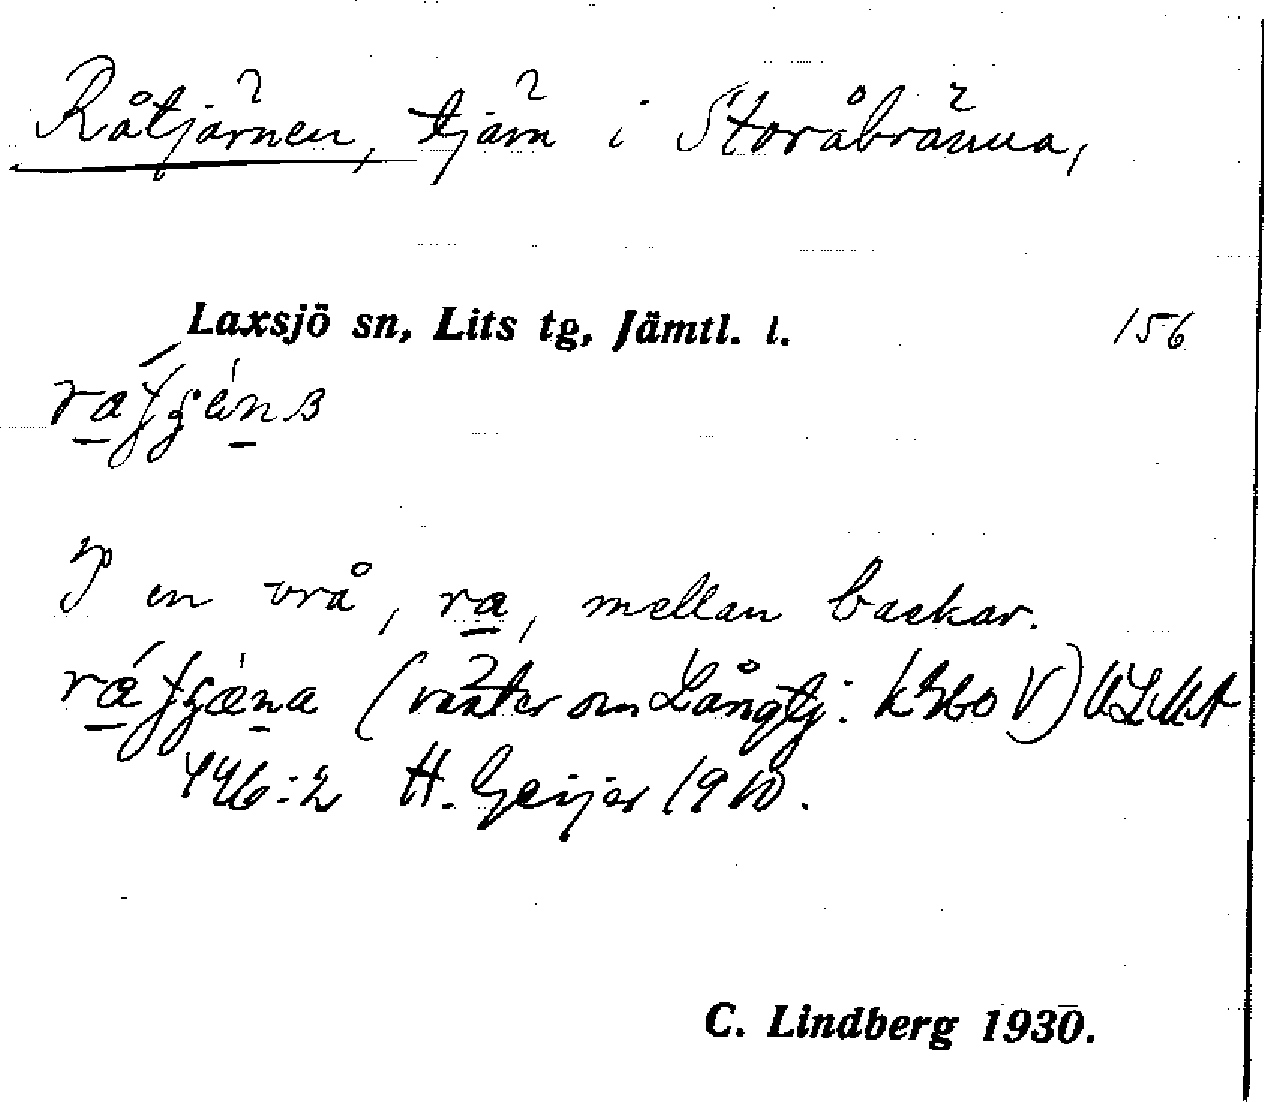 Råtjärnen, tjärn i Storåbränna,
Laxsjö sn, Lits tg, Jämtl. l. 156
I en vrå, ra, mellan backar.
(väster om Långtj: k360 V) ULMA
446:2 H. Geijer 1910.
C. Lindberg 1930.